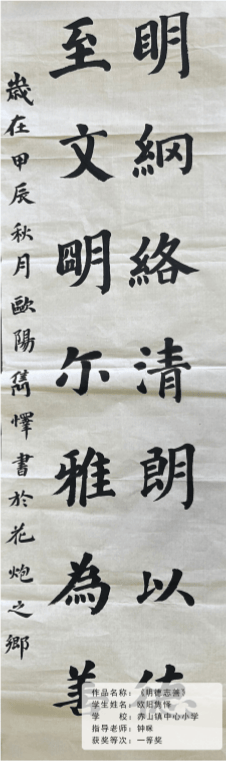 明綱絡清朗以
至文明尔雅為
歲在甲辰秋月歐陽雋懌書於花炮之鄉
作品名称：《明德志善》
学生姓名：欧阳隽怿
学　　校：赤山镇中心小学
指导老师：钟咪
获奖等次：一等奖